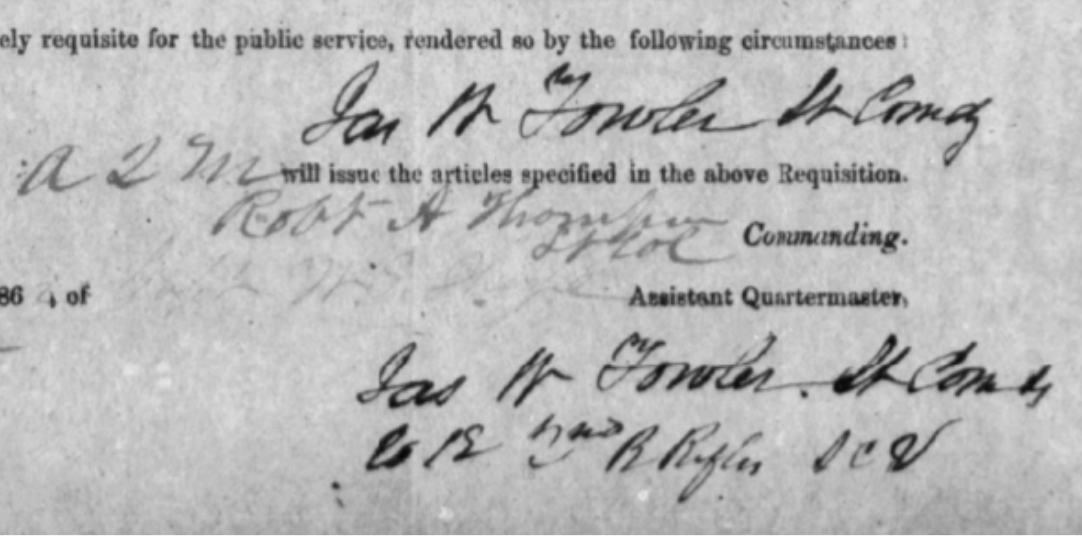 ely requisite for the public service, rendered so by the following circumstances:
Jas W Fowler Lt Comdg
A Q M will issue the articles specified in the above Requisition.
Robt A Thompson
Lt Col Commanding.
86 4 of W. Assistant Quartermaster,
Jas W Fowler. Lt Comdg
Co E 2nd R Rifles S C V